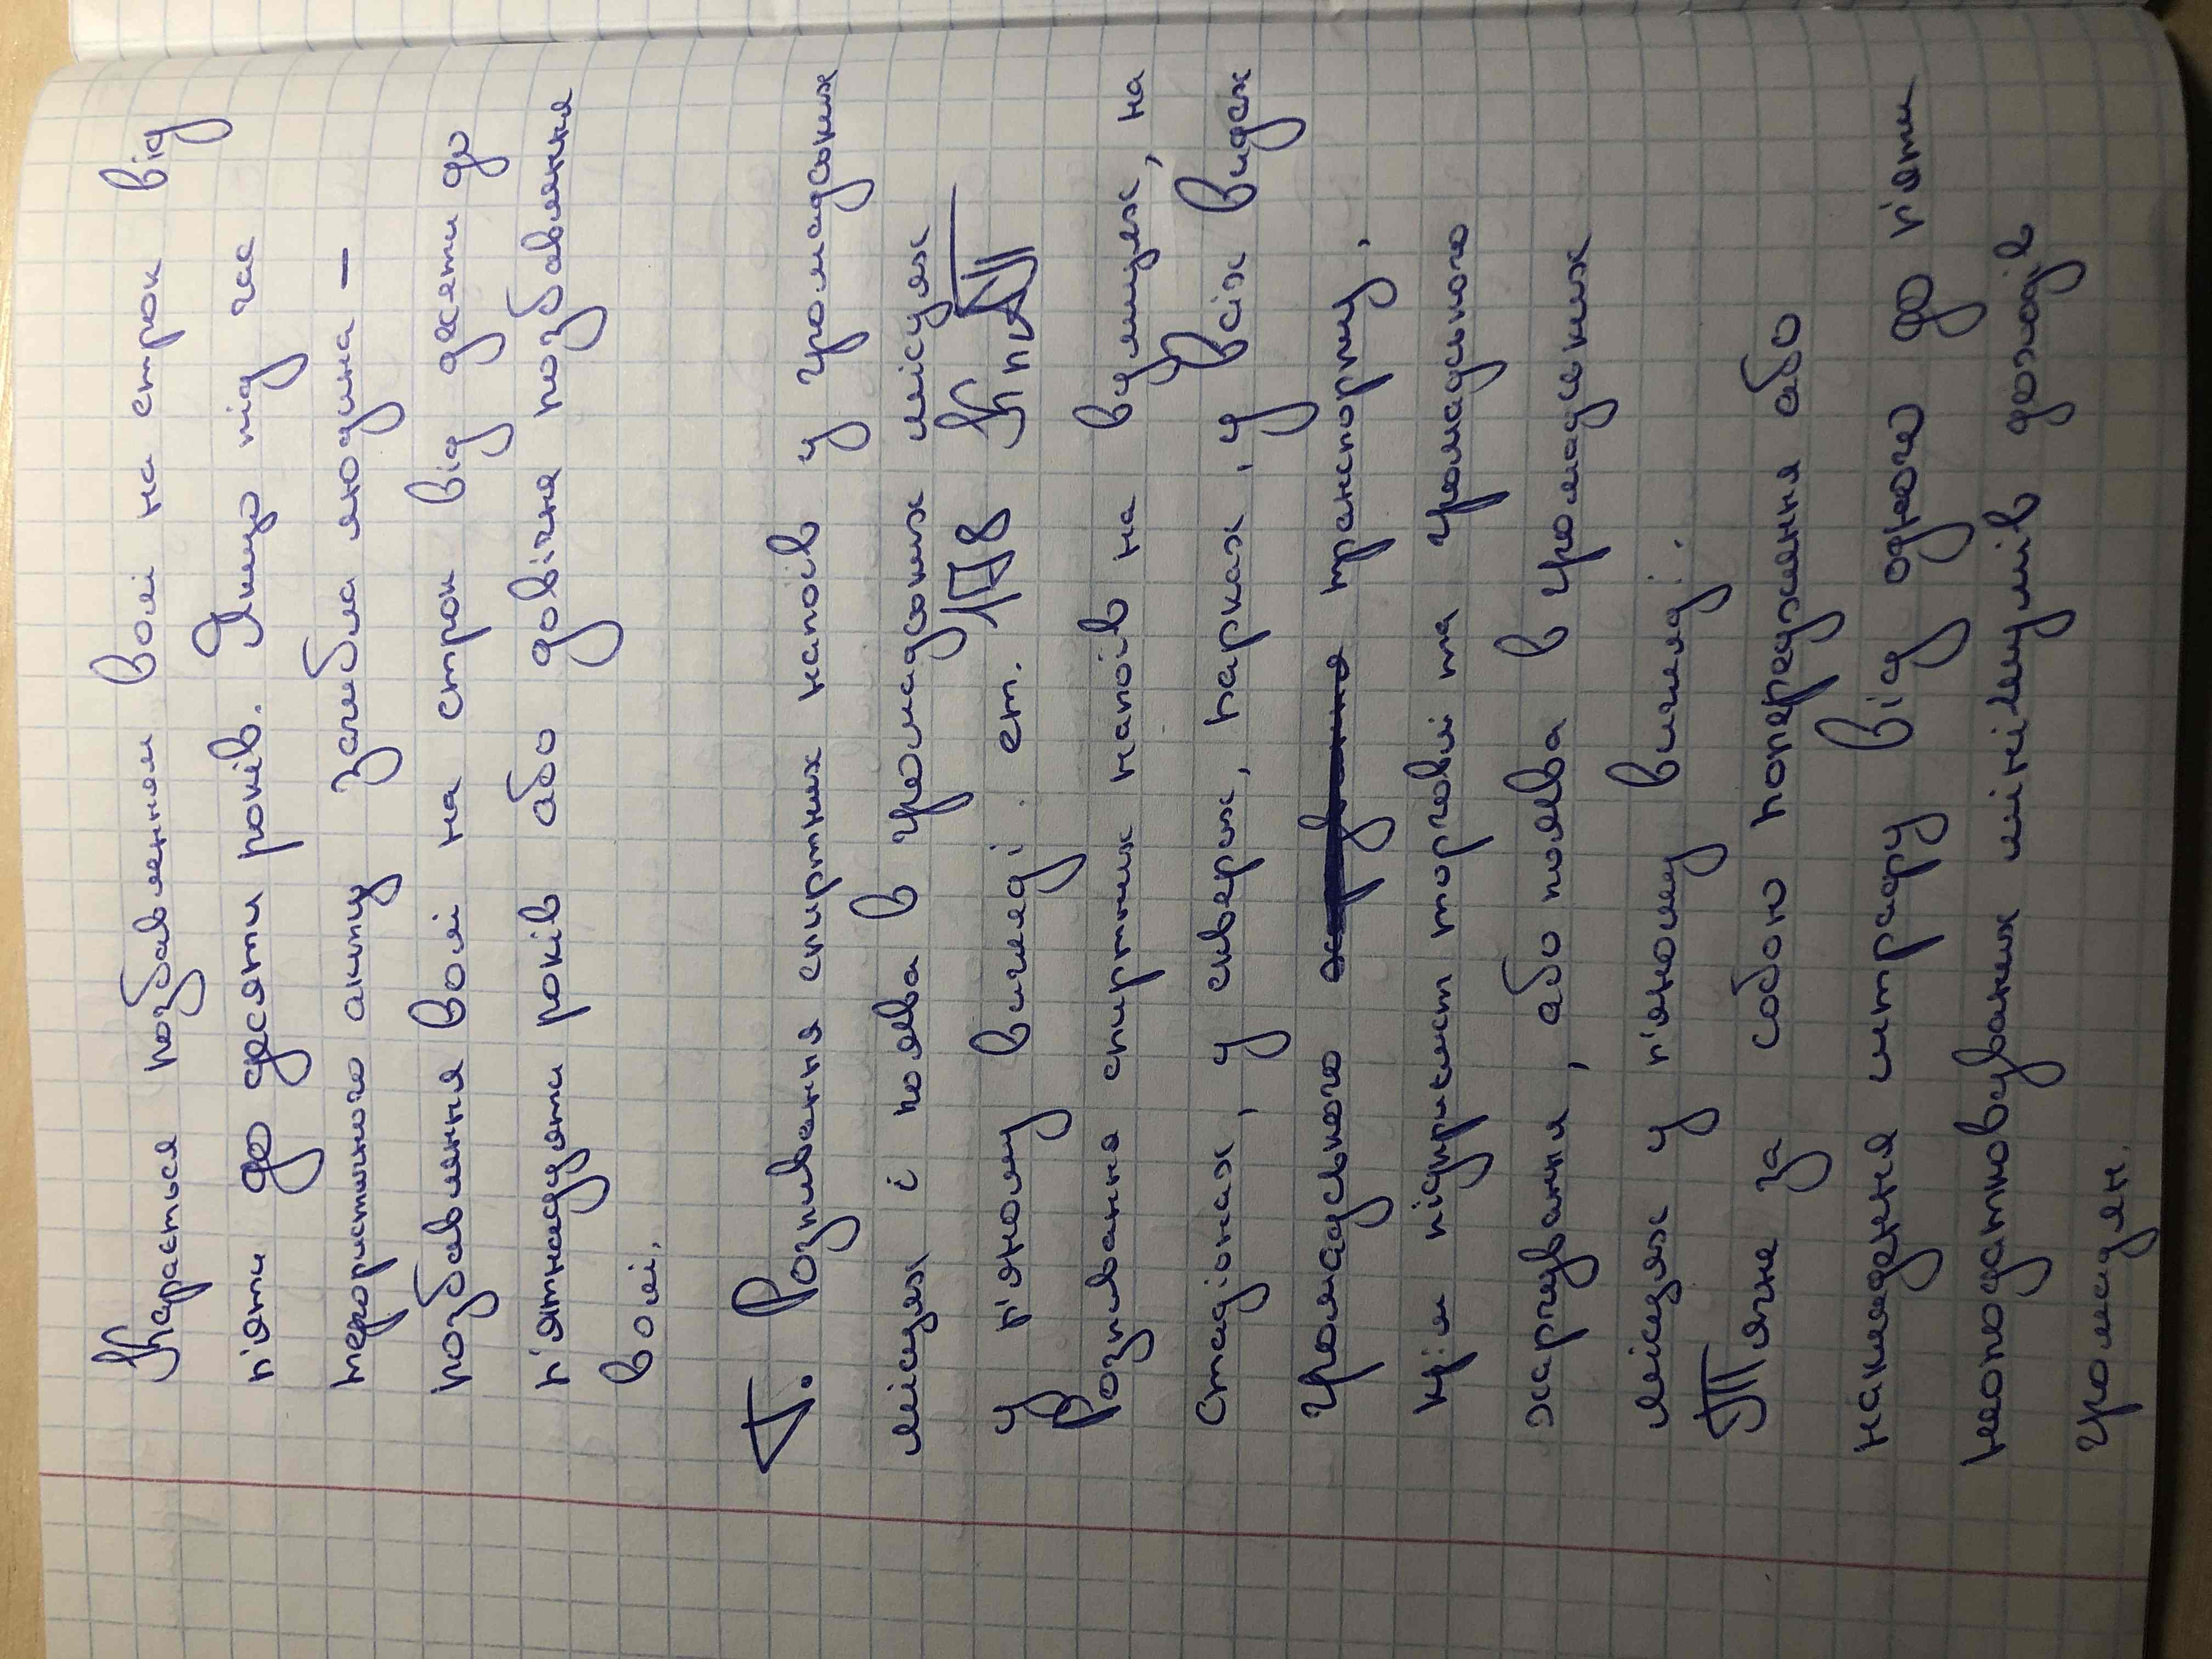 Карається позбавленням волі на строк від
п'яти до десяти років. Якщо під час
терористичного акту загибла людина –
позбавлення волі на строк від десяти до
п'ятнадцяти років або довічне позбавлення
волі.
Д. Розпивання спиртних напоїв у громадських
місцях і поява в громадських місцях
у п'яному вигляді. ст. 178 КпАП
Розпивання спиртних напоїв на вулицях, на
стадіонах, у скверах, парках, у всіх видах
громадського транспорту,
крім підприємст торгівлі та громадського
харчування, або поява в громадських
місцях у п'яному вигляді.
Тягне за собою попередження або
накладення штрафу від одного до п'яти
неоподатковуваних мінімумів доходів
громадян.